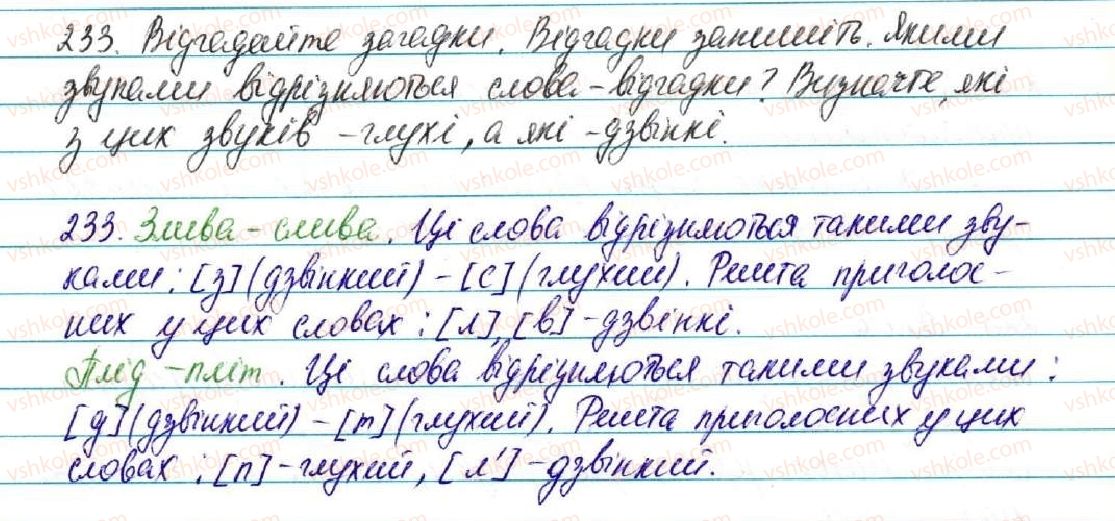 233. Відгадайте загадки. Відгадки запишіть. Якими
звуками відрізняються слова-відгадки? Визначте, які
з цих звуків - глухі, а які - дзвінкі.
233. Злива - слива. Ці слова відрізняються такими зву-
ками: [з] (дзвінкий) - [с] (глухий). Решта приголос-
них у цих словах: [л], [в] - дзвінкі.
Плід - пліт. Ці слова відрізняються такими звуками:
[д] (дзвінкий) - [т] (глухий). Решта приголосних у цих
словах: [п] - глухий, [л'] - дзвінкий.